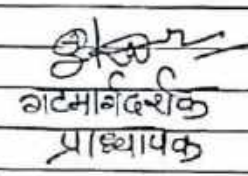 गटमार्गदर्शक
प्राध्यापक